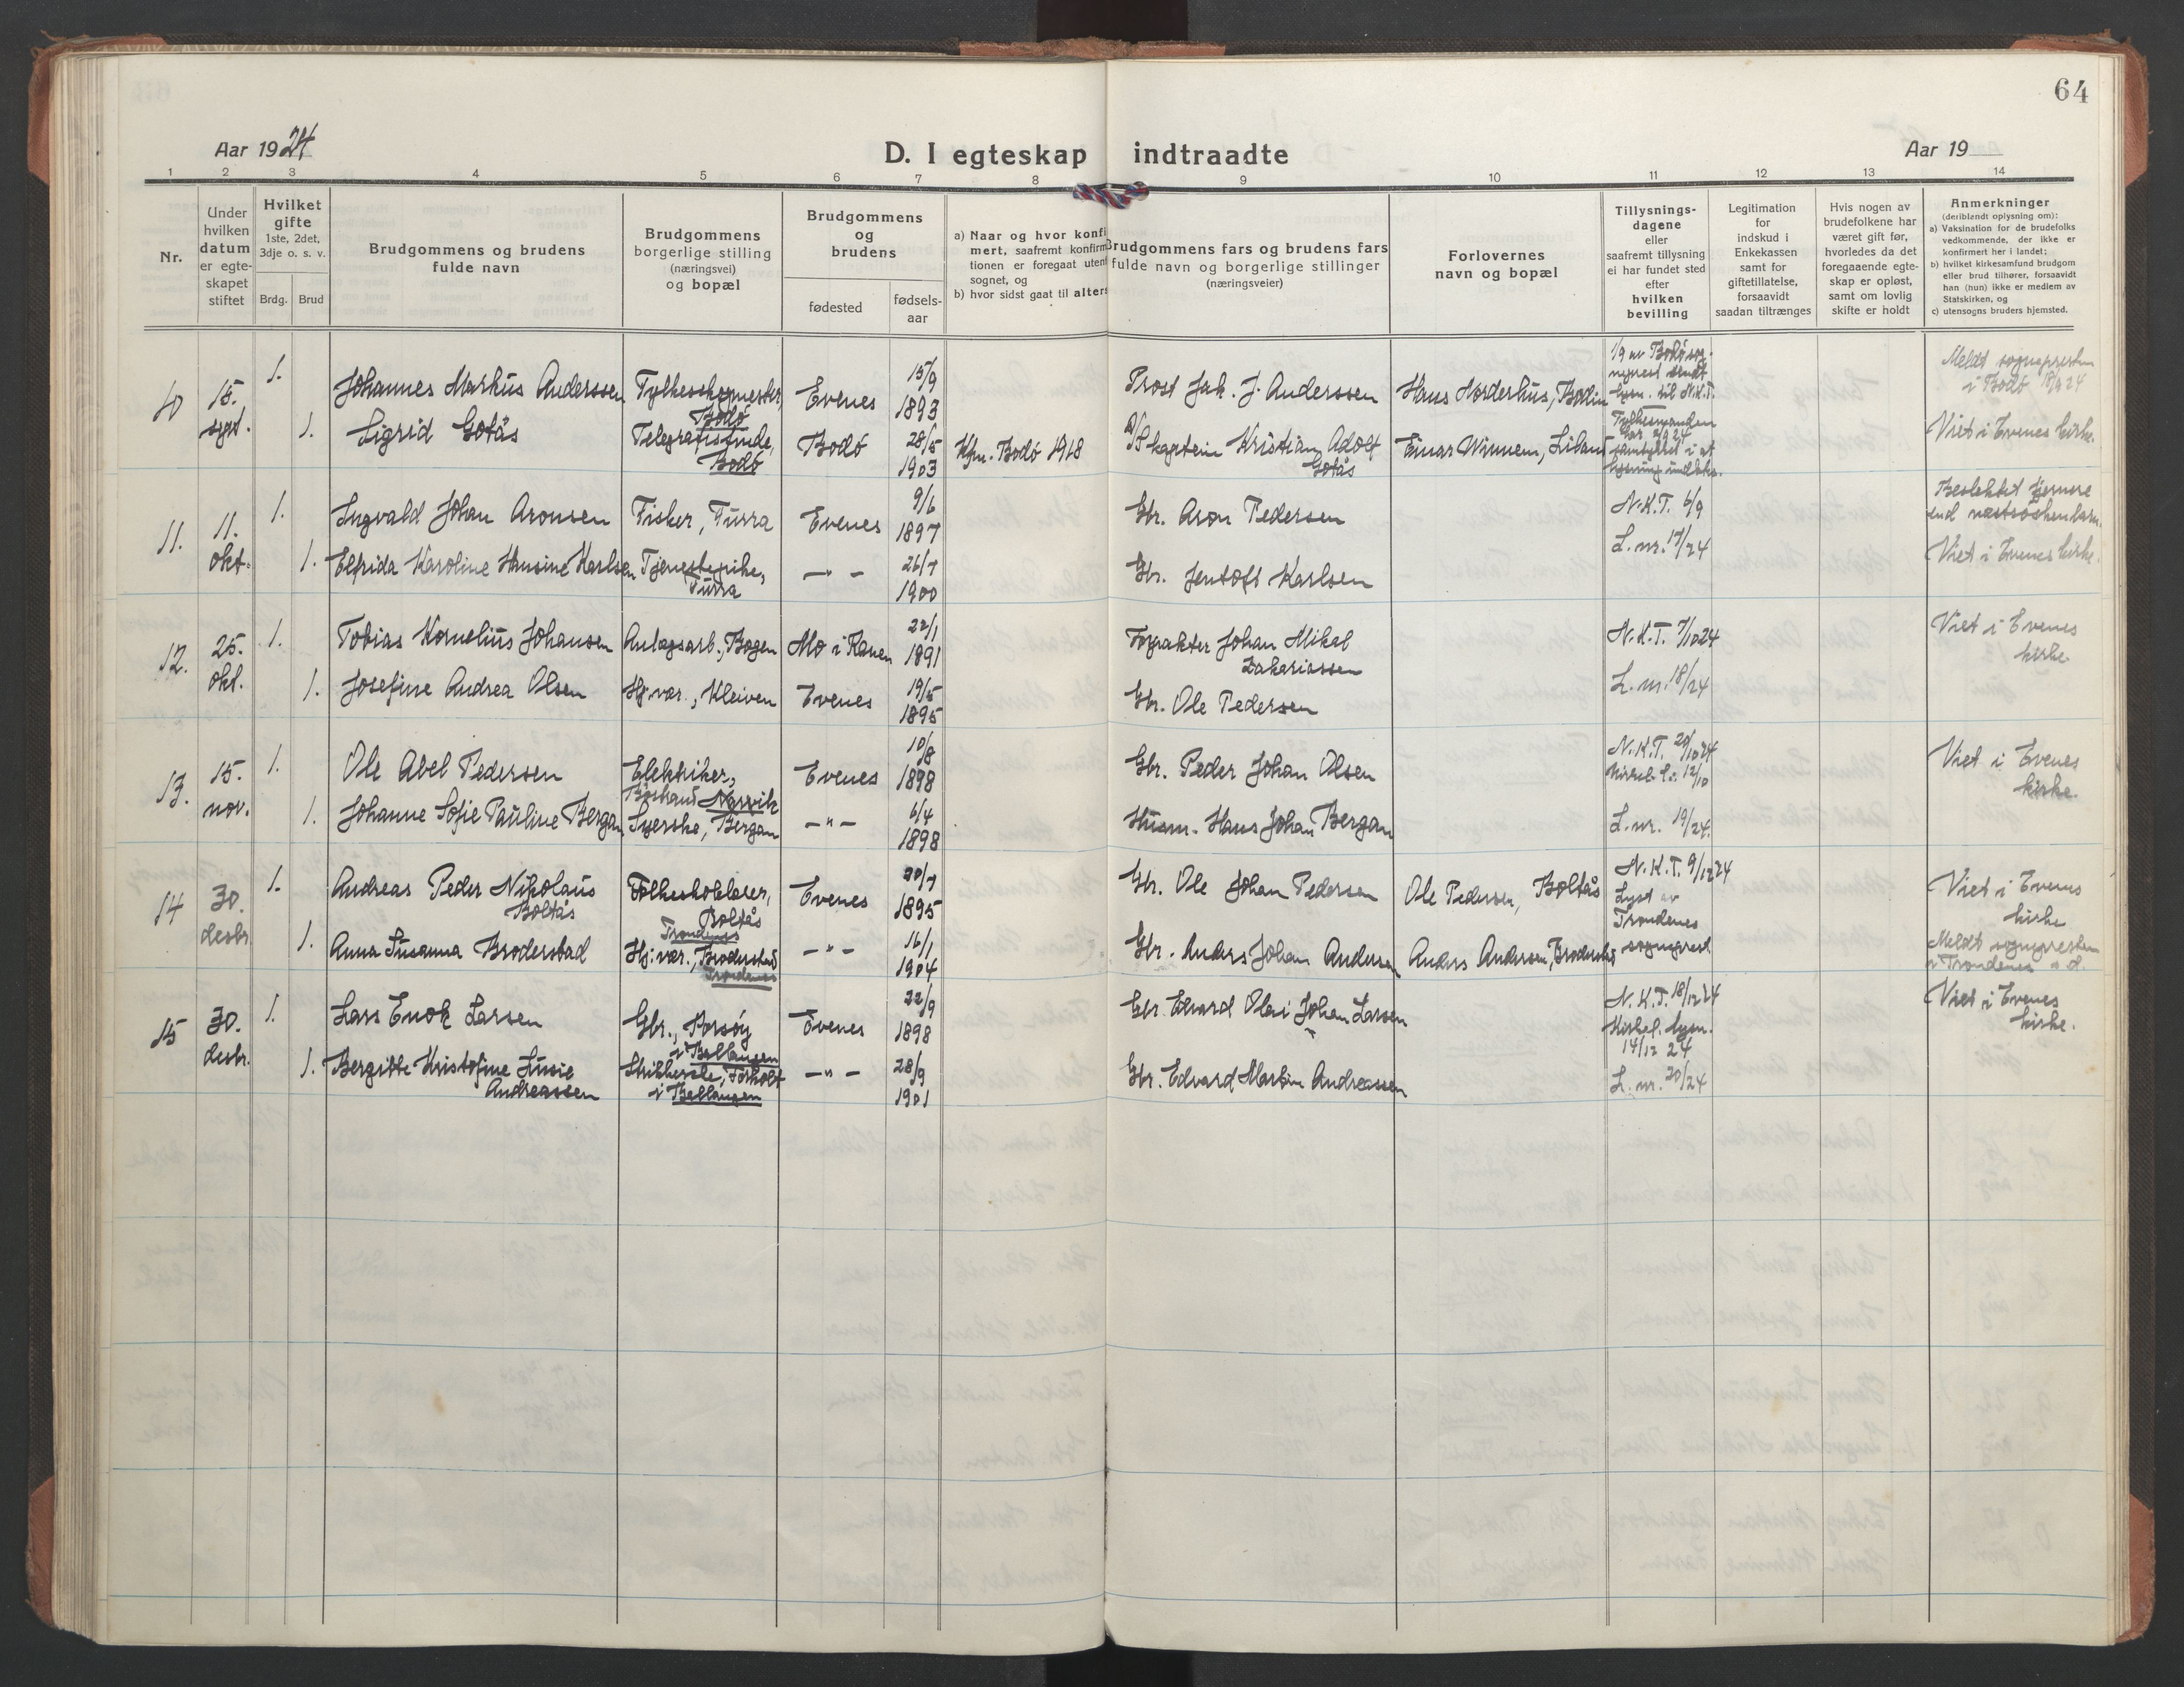 64
Aar 1924
D. I egteskap indtraadte
Aar 19
1 2 3 4 5 6 7 8 9 10 11 12 13 14
Nr.
Under
hvilken
datum
er egte-
skapet
stiftet
Hvilket
gifte
1ste, 2det,
3dje o. s. v.
Brdg. Brud
Brudgommens og brudens
fulde navn
Brudgommens
borgerlige stilling
(næringsvei)
og bopæl
Brudgommens
og
brudens
fødested
fødsels-
aar
a) Naar og hvor konfi
mert, saafremt konfirm
tionen er foregaat uten
sognet, og
b) hvor sidst gaat til alters
Brudgommens fars og brudens fars
fulde navn og borgerlige stillinger
(næringsveier)
Forlovernes
navn og bopæl
Tillysnings-
dagene
eller
saafremt tillysning
ei har fundet sted
efter
hvilken
bevilling
Legitimation
for
indskud i
Enkekassen
samt for
giftetillatelse,
forsaavidt
saadan tiltrænges
Hvis nogen av
brudefolkene har
været gift før,
hvorledes da det
foregaaende egte-
skap er opløst,
samt om lovlig
skifte er holdt
Anmerkninger
(deriblandt oplysning om):
a) Vaksination for de brudefolks
vedkommende, der ikke er
konfirmert her i landet;
b) hvilket kirkesamfund brudgom
eller brud tilhører, forsaavidt
han (hun) ikke er medlem av
Statskirken, og
c) utensogns bruders hjemsted.
10
15.
sept.
1.
Johannes Markus Anderssen
Fylkesskogmester,
Bodø
Evenes
15/9
1893
Prost Jak. J. Anderssen
Hans Norderhus, Bodin
1/9 av Bodø sog-
neprest
lysn. til N.K.T.
Meldt sognepresten
i Bodø 18/9 24
1.
Sigrid Gotås
Telegrafistinde,
Bodø
Bodø
28/5
1903
Kfm. Bodø 1918
Skaptein Kristian Adolf
Gotås
Einar Winnem, Liland
Fylkesmanden
har 2/9 24
samtykket i at
Viet i Evenes kirke.
11.
11.
okt.
1.
Ingvald Johan Aronsen
Fisker, Turra
Evenes
9/6
1897
Gbr. Aron Pedersen
N.K.T. 6/9
L. nr. 17/24
Beslektet fjernere
end næstsøskenbarn.
1.
Elfrida Karoline Hansine Karlsen
Tjenestepike,
Turra
— " —
26/7
1900
Gbr. Jentoft Karlsen
Viet i Evenes kirke.
12.
25.
okt.
1.
Tobias Kornelius Johansen
Anlægsarb., Bogen
Mo i Ranen
22/1
1891
Forpakter Johan Mikal
Zakariassen
N.K.T. 7/10 24
Viet i Evenes
kirke.
1.
Josefine Andrea Olsen
Hj. vær., Kleiven
Evenes
19/5
1895
Gbr. Ole Pedersen
L. nr. 18/24
13.
15.
nov.
1.
Ole Abel Pedersen
Elektriker,
Narvik
Evenes
10/8
1898
Gbr. Peder Johan Olsen
N.K.T. 20/10 24
12/10
Viet i Evenes
kirke.
1.
Johanne Sofie Pauline Bergan
Syerske, Bergan
— " —
6/4
1898
Husm. Hans Johan Bergan
L. nr. 19/24.
14
30.
desbr.
1.
Andreas Peder Nikolaus
Boltås
Folkeskolelærer,
Boltås
Trondenes
Evenes
20/7
1895
Gbr. Ole Johan Pedersen
Ole Pedersen, Boltås
N.K.T. 9/12 24
Lyst av
Trondenes
sogneprest
Viet i Evenes
kirke
1.
Anna Susanna Brodersbad
Hj. vær., Brodersbad
Trondenes
— " —
16/1
1904
Gbr. Anders Johan Andersen
Anders Andersen, Brodersbad
Meldt sognepresten
i Trondenes s. d.
15
30.
desbr.
1.
Lars Enok Larsen
Gbr., Porsøy
i Ballangen
Evenes
22/9
1898
Gbr. Edvard Olai Johan Larsen
N.K.T. 18/12 24
Kirkel. lysn.
14/12 24
Viet i Evenes
kirke.
1.
Bergitte Kristofine Susie
Andreassen
Strikkerske, Forholt
i Ballangen
— " —
28/9
1901
Gbr. Edvard Martin Andreassen
L. nr. 20/24